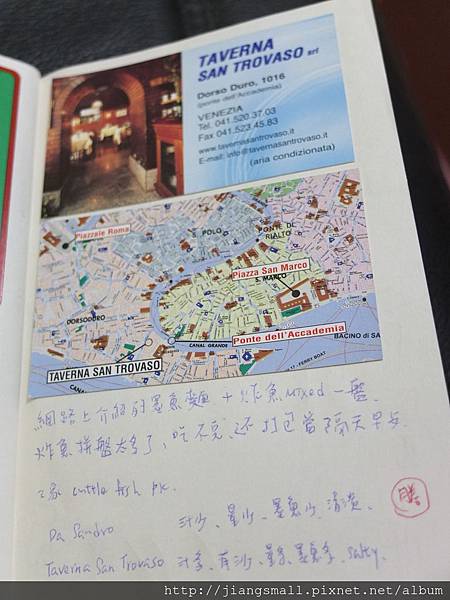 TAVERNA
SAN TROVASO srl
Dorso Duro, 1016
(ponte dell'Accademia)
VENEZIA
Tel. 041.520.37.03
Fax 041.523.45.83
www.tavernasantrovaso.it
E-mail: info@tavernasantrovaso.it
(aria condizionata)
Piazzale Roma
S. POLO
PONTE DI RIALTO
Piazza San Marco
S. MARCO
DORSODURO
Ponte dell'Accademia
CANAL GRANDE
BACINO di SA
TAVERNA SAN TROVASO
FERRY BOAT
網路上介紹的墨魚麵 + 炸魚 mixed 一盤
炸魚拼盤太多了、吃不完、還打包當隔天早午
2家 cuttle fish pk.
Da Sandro 汁少、量少、墨魚少、清淡、
勝
Taverna San Trovaso 汁多、有沙、量多、墨魚多、salty.
http://jiangsmall.pixnet.net/album